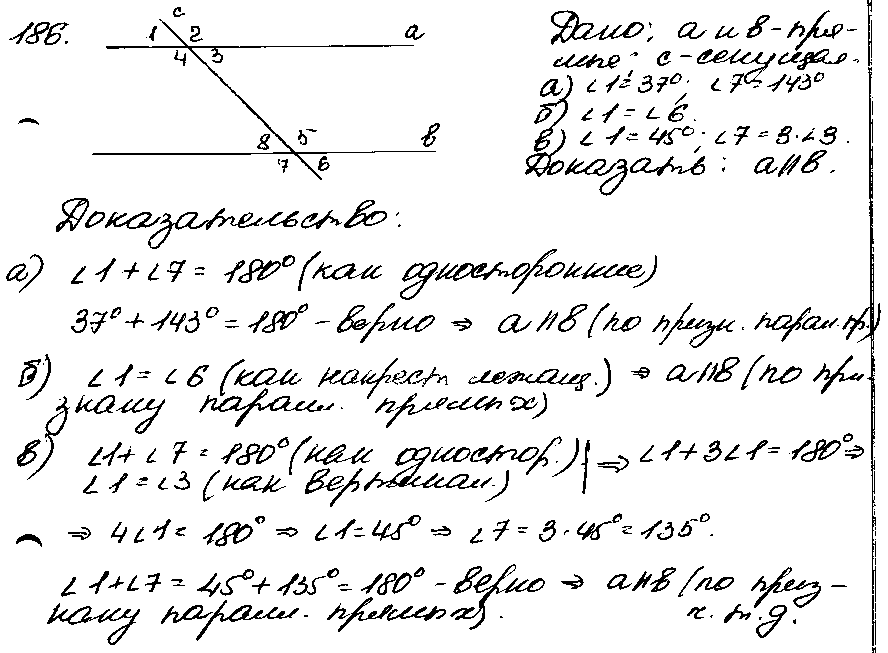 186.
c
1 2 a
4 3
8 5 в
7 6
Дано: a и в - пря-
мые; c - секущая.
а) ∠1 = 37°; ∠7 = 143°
б) ∠1 = ∠6.
в) ∠1 = 45°; ∠7 = 3·∠3.
Доказать: a∥в.
Доказательство:
а) ∠1 + ∠7 = 180° (как односторонние)
37° + 143° = 180° - верно ⇒ a∥в (по призн. парал. пр.)
б) ∠1 = ∠6 (как накрест лежащ.) ⇒ a∥в (по при-
знаку паралл. прямых)
в) ∠1 + ∠7 = 180° (как одностор.) ⇒ ∠1 + 3∠1 = 180° ⇒
∠1 = ∠3 (как вертикал.)
⇒ 4∠1 = 180° ⇒ ∠1 = 45° ⇒ ∠7 = 3·45° = 135°.
∠1 + ∠7 = 45° + 135° = 180° - верно ⇒ a∥в (по приз-
наку паралл. прямых). ч.т.д.